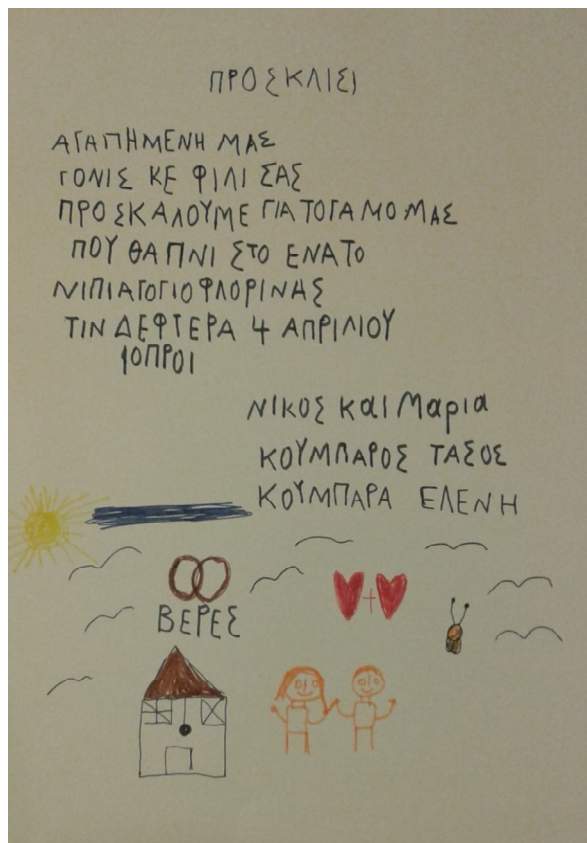 ΠΡΟΣΚΛΙΣΙ
ΑΓΑΠΗΜΕΝΗ ΜΑΣ
ΓΟΝΙΣ ΚΕ ΦΙΛΙ ΣΑΣ
ΠΡΟΣΚΑΛΟΥΜΕ ΓΙΑΤΟΓΑΜΟ ΜΑΣ
ΠΟΥ ΘΑ ΠΝΙ ΣΤΟ ΕΝΑΤΟ
ΝΙΠΙΑΓΟΓΙΟ ΦΛΟΡΙΝΑΣ
ΤΙΝ ΔΕΦΤΕΡΑ 4 ΑΠΡΙΛΙΟΥ
10ΠΡΟΙ
ΝΙΚΟΣ ΚαΙ Μαρια
ΚΟΥΜΠΑΡΟΣ ΤΑΣΟΣ
ΚΟΥΜΠΑΡΑ ΕΛΕΝΗ
ΒΕΡΕΣ